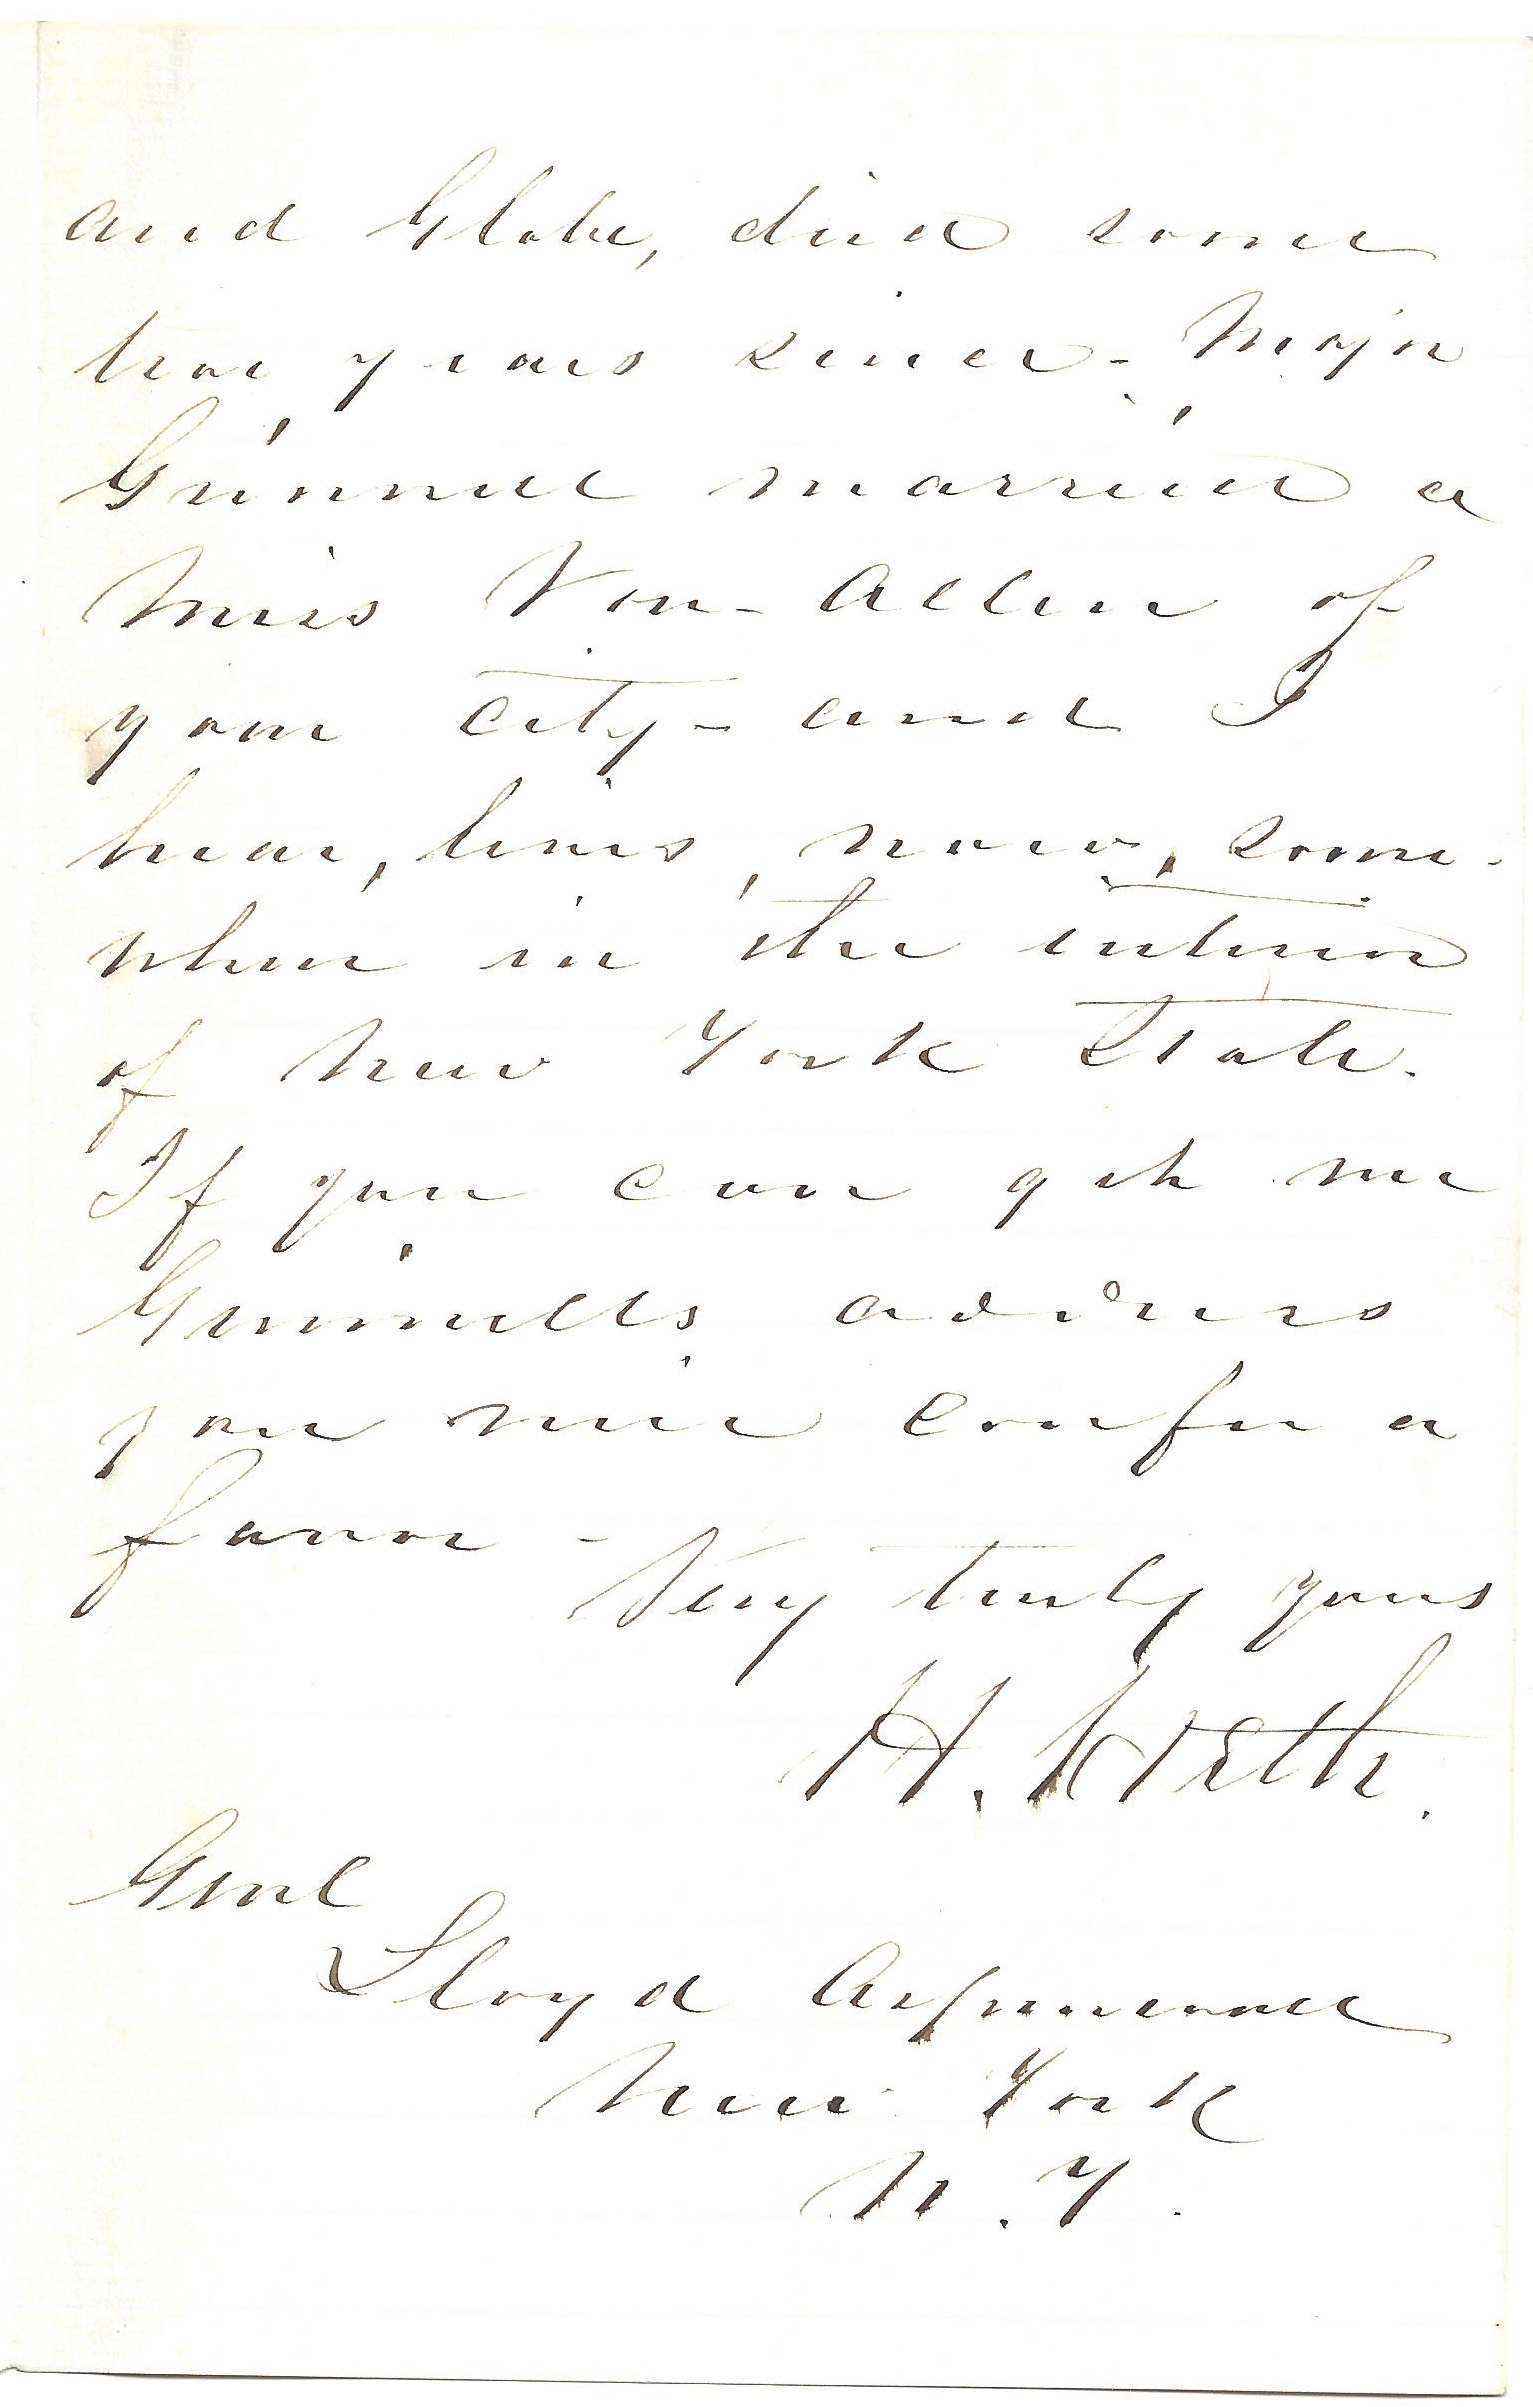 and Globe, died some
two years since - Major
Grinnell married a
Miss Van-Allen of
your city - and I
hear, lives, now, some-
where in the interior
of New York State.
If you can get me
Grinnells address
you will confer a
favor -
Very truly yours
H. Heth.
Genl
Lloyd Aspinwall
New York
N. Y.